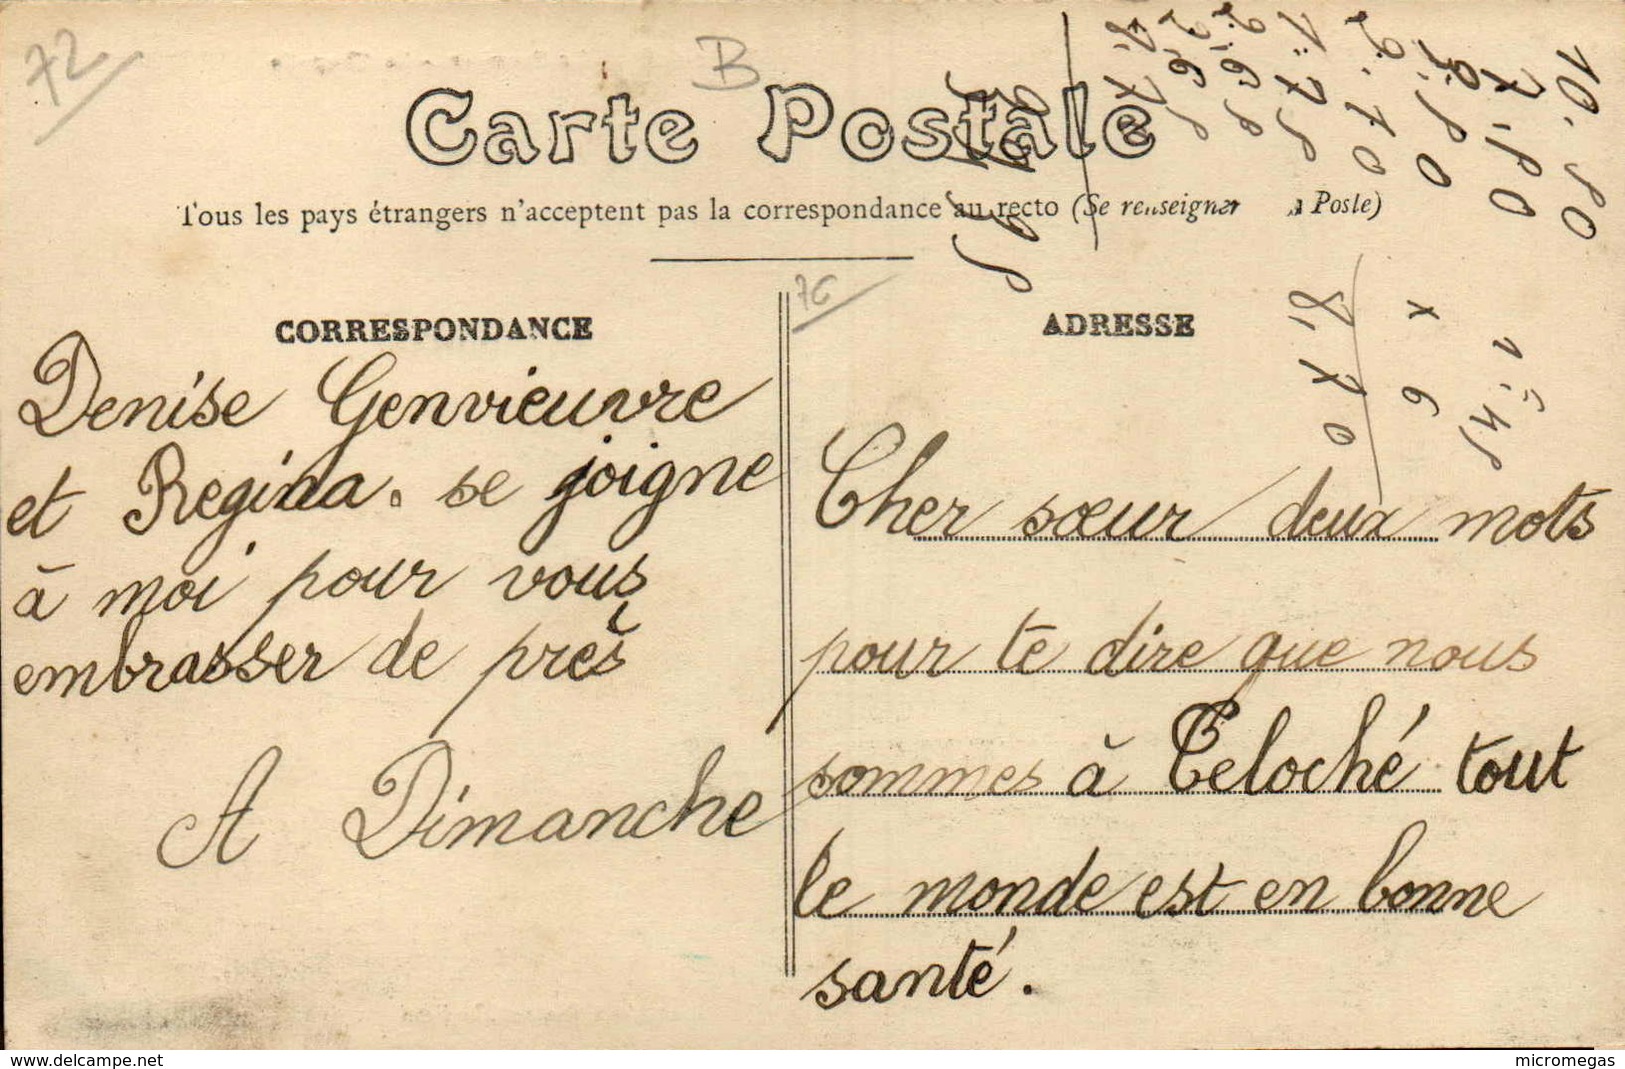 72
B
Carte Postale
Tous les pays étrangers n'acceptent pas la correspondance au recto (Se renseigner à la Poste)
76
CORRESPONDANCE
Denise Genvieuvre
et Regina. se joigne
à moi pour vous
embrasser de près
A Dimanche
ADRESSE
Cher sœur deux mots
pour te dire que nous
sommes à Teloché tout
le monde est en bonne
santé.
10.50
7.50
2.70
1.75
2.65
2.65
1.45
x 6
8.70
www.delcampe.net
micromegas